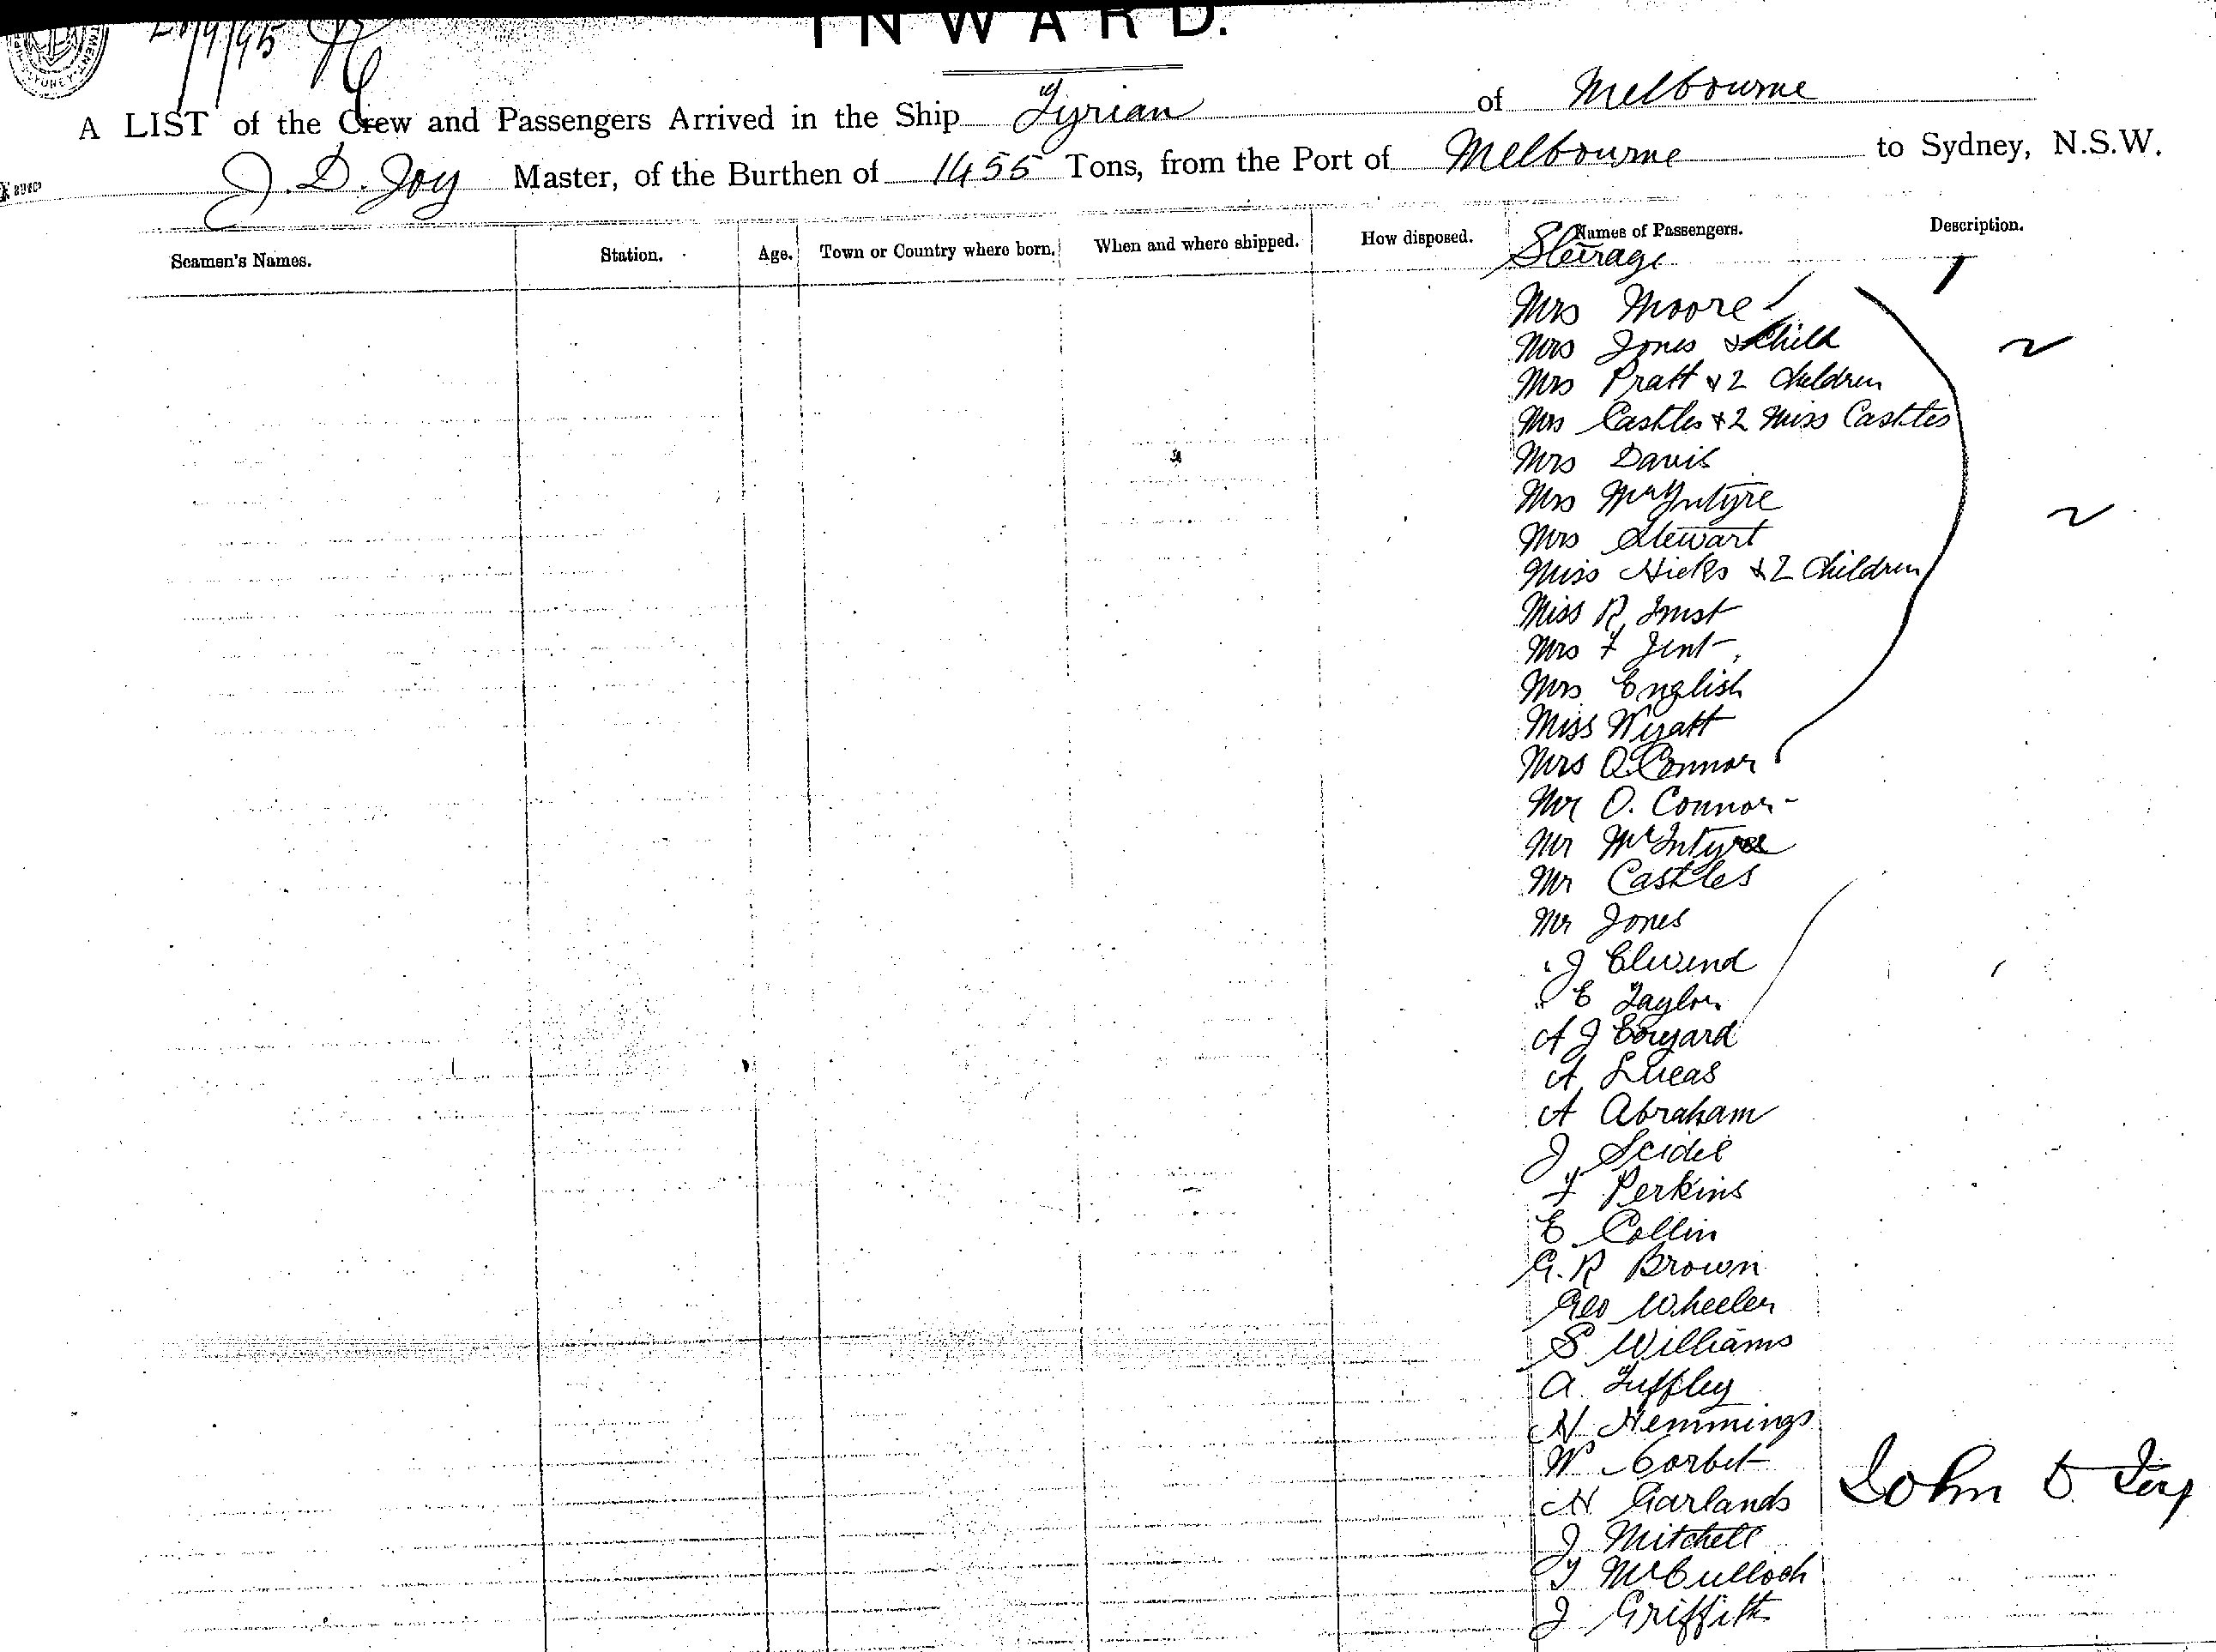 INWARD.
A LIST of the Crew and Passengers Arrived in the Ship Tyrian of Melbourne
J. D. Joy Master, of the Burthen of 1455 Tons, from the Port of Melbourne to Sydney, N.S.W.
Seamen's Names. Station. Age. Town or Country where born. When and where shipped. How disposed. Names of Passengers. Description.
Steirage
Mrs Moore
Mrs Jones & Child
Mrs Pratt & 2 Children
Mrs Castles & 2 Miss Castles
Mrs Davis
Mrs McIntyre
Mrs Stewart
Miss Hicks & 2 Children
Miss R
Mrs F
Mrs English
Miss Wyatt
Mrs O.Connor
Mr O. Connor
Mr McIntyre
Mr Castles
Mr Jones
J
E Taylor
A J
A Lucas
A Abraham
J Seidel
F Perkins
E Collin
G. R Brown
Geo Wheeler
S Williams
A. Tuffley
H Hemmings
W Corbet
H Garlands
John D. Joy
J Mitchell
McCulloch
J Griffith